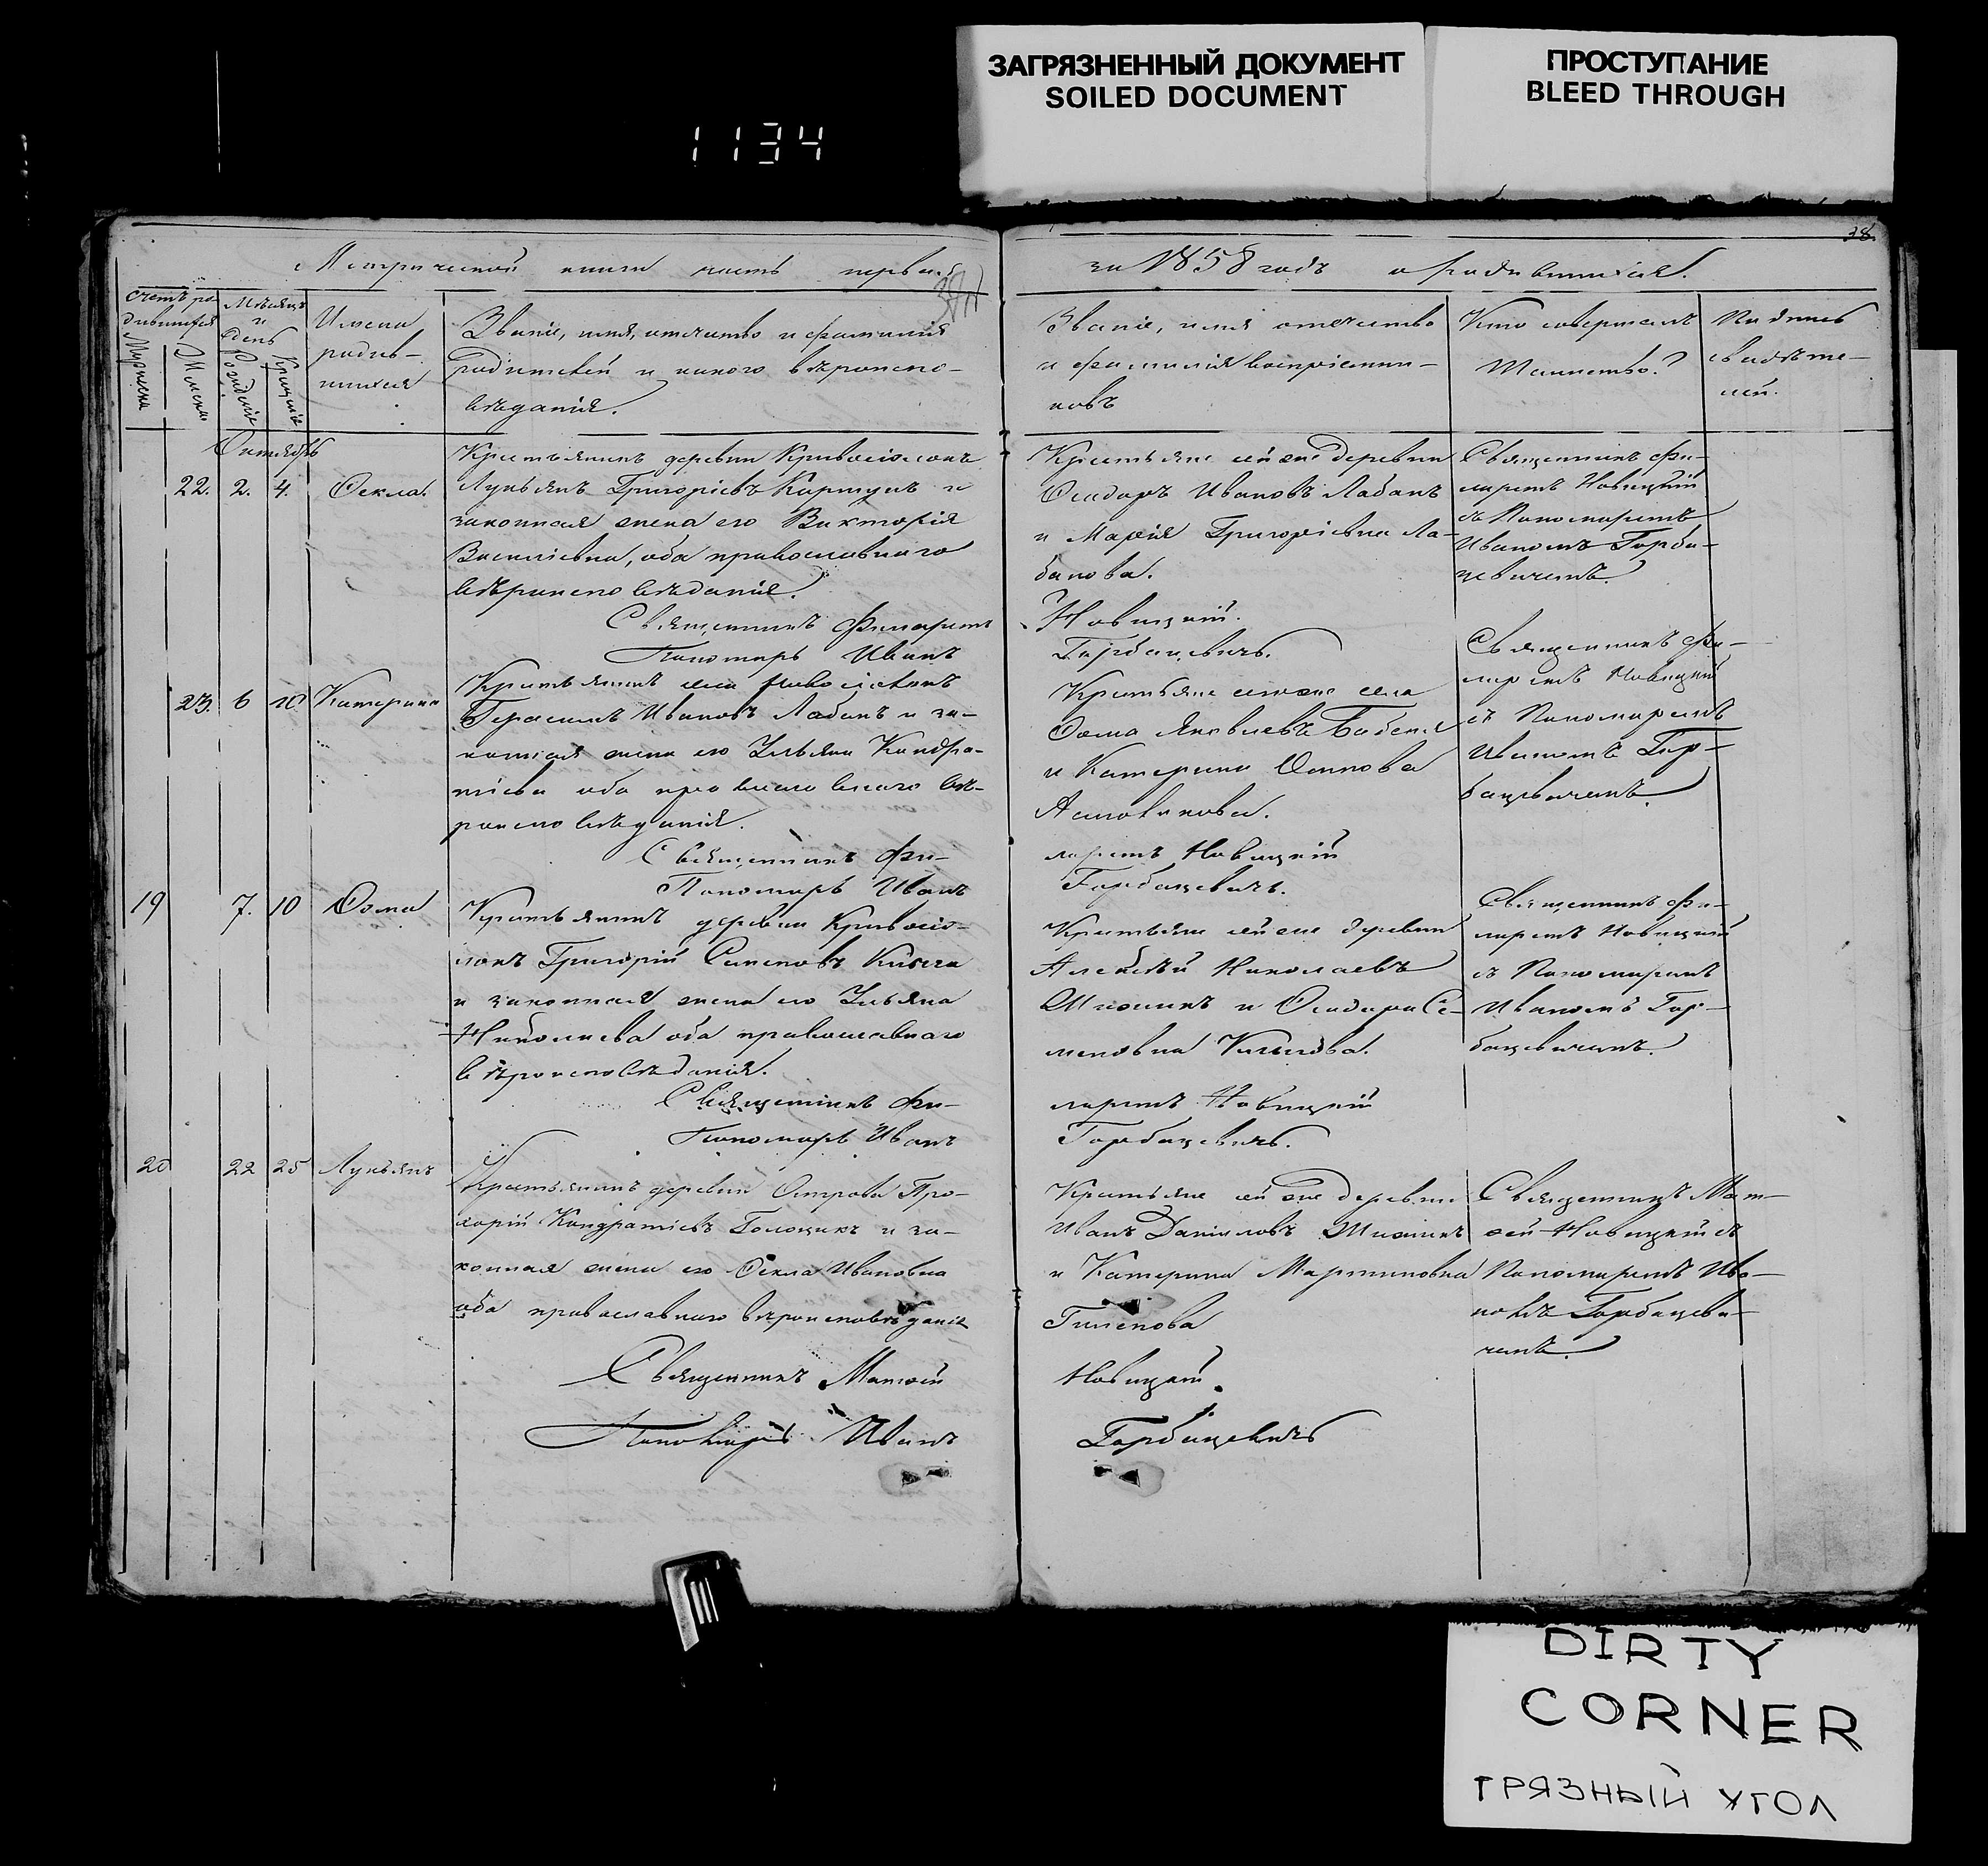 ЗАГРЯЗНЕННЫЙ ДОКУМЕНТ
SOILED DOCUMENT
ПРОСТУПАНИЕ
BLEED THROUGH
1134
38
Метрической книги часть первая
за 1858 годъ о родившихся.
Счетъ ро-
дившихся
Мужеска
Женска
Мѣсяцъ
и
день
Рожденіе
Крещеніе
Имена
родив-
шихся
Званіе, имя, отчество и фамилія
родителей и какого вѣроиспо-
вѣданія.
Званіе, имя отчество
и фамилія воспріемни-
ковъ
Кто совершалъ
Таинство?
Подпись
свидѣте-
лей.
Октябрь
22. 2. 4. Ѳекла.
Крестьянинъ деревни
Лукьянъ Григорьевъ и
законная жена его Викторія
Василіевна, оба православнаго
вѣроисповѣданія.
Священникъ Филаретъ
Пономарь Иванъ
Крестьяне сей же деревни
Ѳеодоръ Ивановъ Лабанъ
и Марія Григоріевна Ла-
банова.
Новицкій.
Горбацевичъ.
Священникъ Фи-
ларетъ Новицкій
съ Пономаремъ
Иваномъ Горба-
цевичемъ.
23. 6 10 Катерина
Крестьянинъ села
Герасимъ Ивановъ Лабанъ и за-
конная жена его Ульяна Кондра-
тіева оба православнаго вѣ-
роисповѣданія.
Священникъ Фи-
Пономарь Иванъ
Крестьяне села
Ѳома Яковлевъ
и Катерина Осипова
ларетъ Новицкій
Горбацевичъ.
Священникъ Фи-
ларетъ Новицкій
съ Пономаремъ
Иваномъ Гор-
бацевичемъ.
19 7. 10 Ѳома
Крестьянинъ деревни
Григорій
и законная жена его Ульяна
Николаева оба православнаго
вѣроисповѣданія.
Священникъ Фи-
Пономарь Иванъ
Крестьяне сей же деревни
Алексѣй Николаевъ
и Ѳеодора Се-
меновна
ларетъ Новицкій
Горбацевичъ.
Священникъ Фи-
ларетъ Новицкій
съ Пономаремъ
Иваномъ Гор-
бацевичемъ.
20 22 25 Лукьянъ
Крестьянинъ деревни Острова Про-
хорій Кондратіевъ и за-
конная жена его Ѳекла Ивановна
оба православнаго вѣроисповѣданія
Священникъ Матѳей
Пономарь Иванъ
Крестьяне сей же деревни
Иванъ Даніиловъ
и Катерина Мартиновна
Новицкій.
Горбацевичъ
Священникъ Мат-
ѳей Новицкій съ
Пономаремъ Ива-
номъ Горбацеви-
чемъ.
DIRTY
CORNER
ГРЯЗНЫЙ УГОЛ